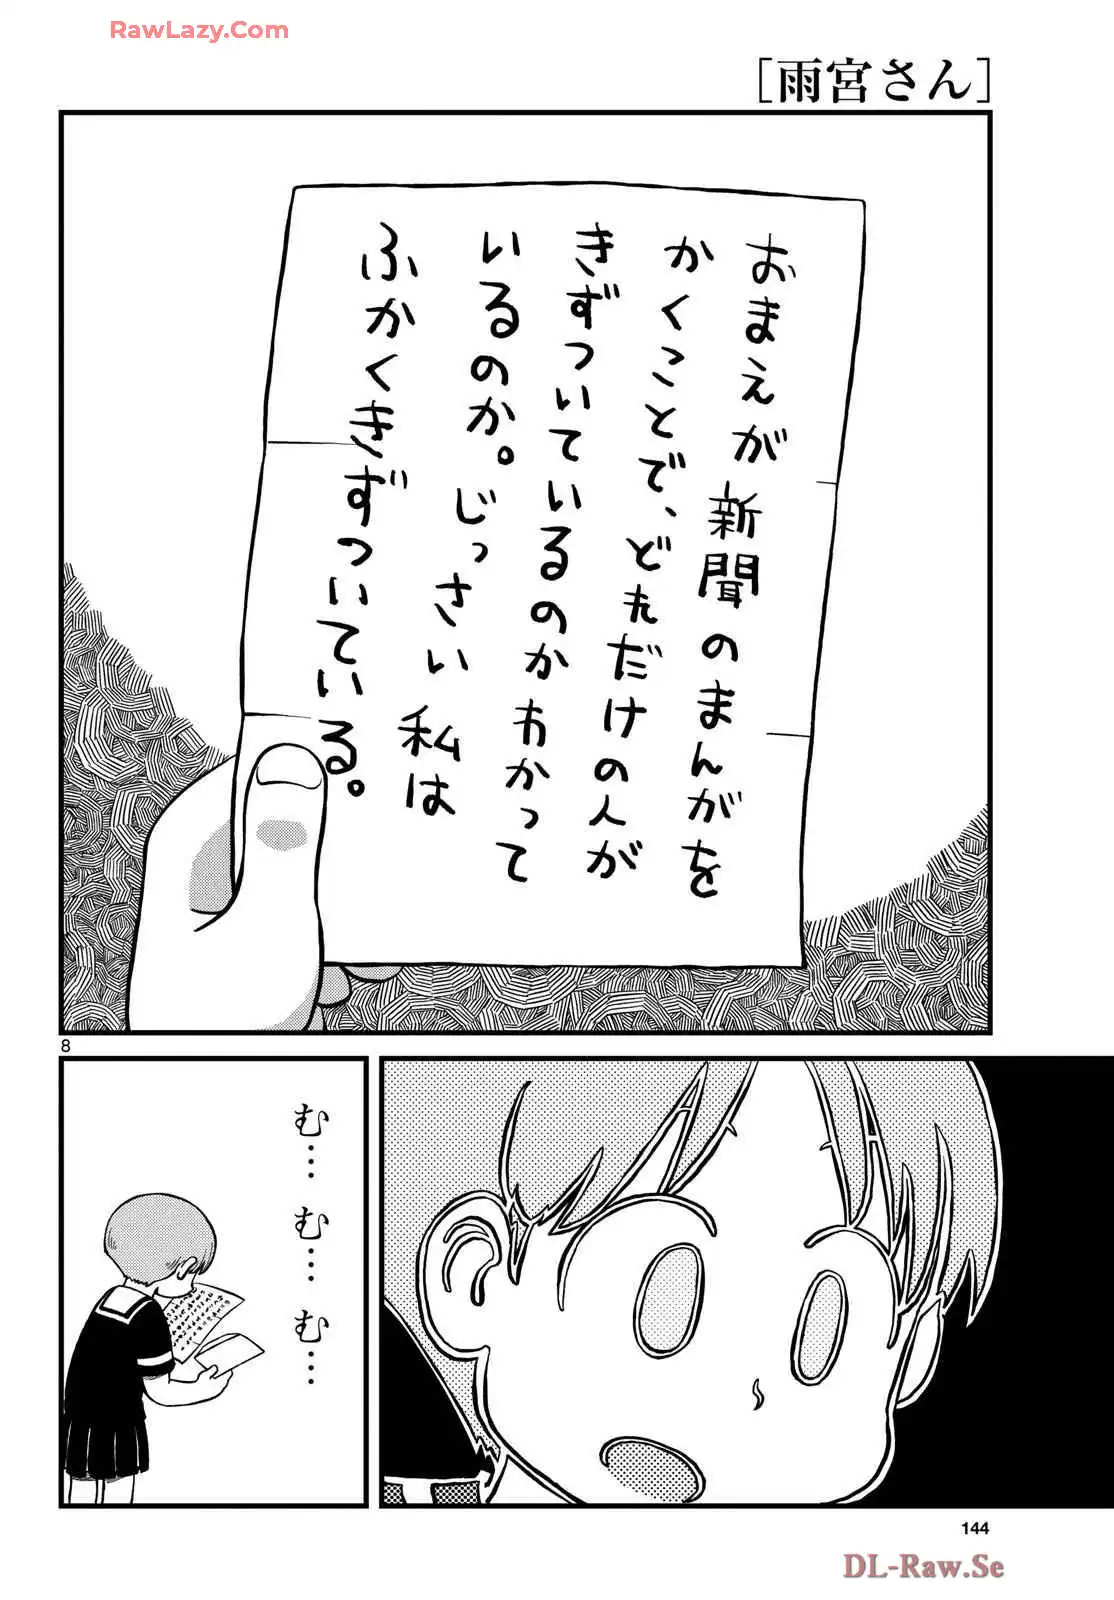 RawLazy.Com
[雨宮さん]
おまえが新聞のまんがを
かくことで、どれだけの人が
きずついているのかわかって
いるのか。じっさい私は
ふかくきずついている。
8
む…む…む…
144
DL-Raw.Se